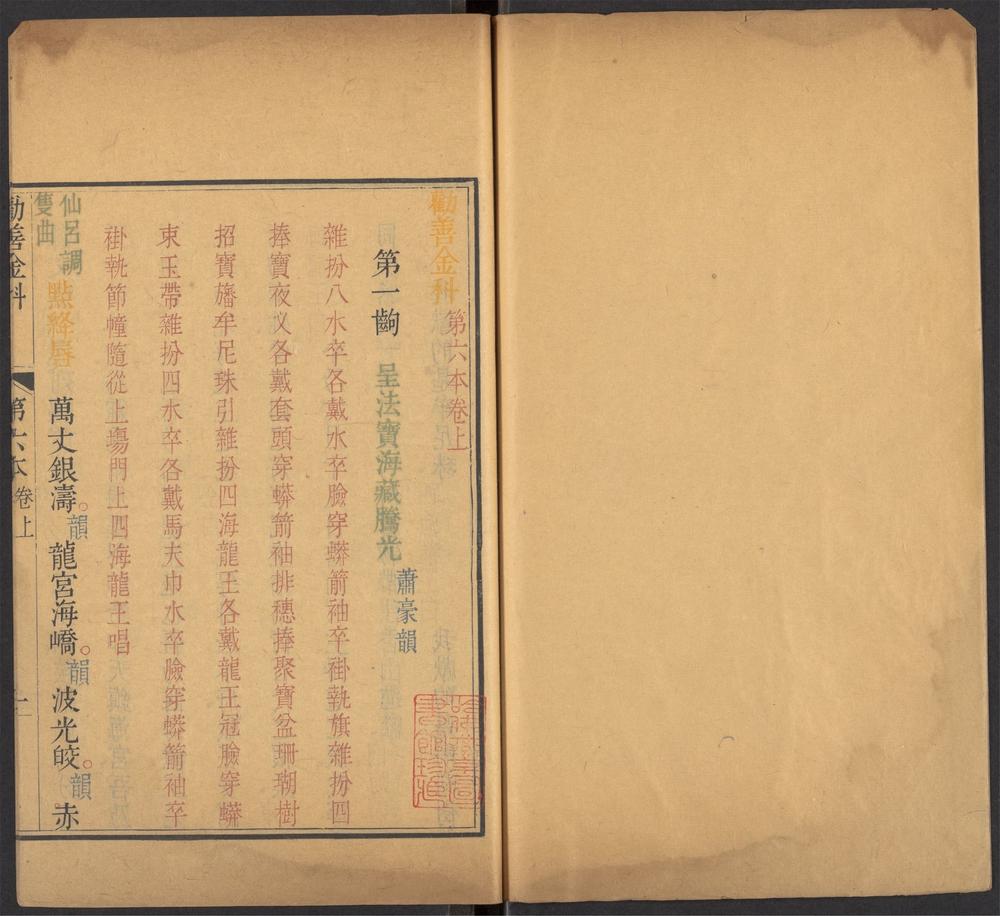 勸善金科第六本卷上
第一齣 呈法寶海藏騰光 蕭豪韻
雜扮八水卒各戴水卒臉穿蟒箭袖卒褂執旗雜扮四
捧寶夜义各戴套頭穿蟒箭袖排穗捧聚寶盆珊瑚樹
招寶旛牟尼珠引雜扮四海龍王各戴龍王冠臉穿蟒
束玉帶雜扮四水卒各戴馬夫巾水卒臉穿蟒箭袖卒
褂執節幢隨從上場門上四海龍王唱
仙呂調
隻曲
點絳唇 萬丈銀濤。韻 龍宮海嶠。韻 波光皎。韻 赤
勸善金科 第六本卷上 一